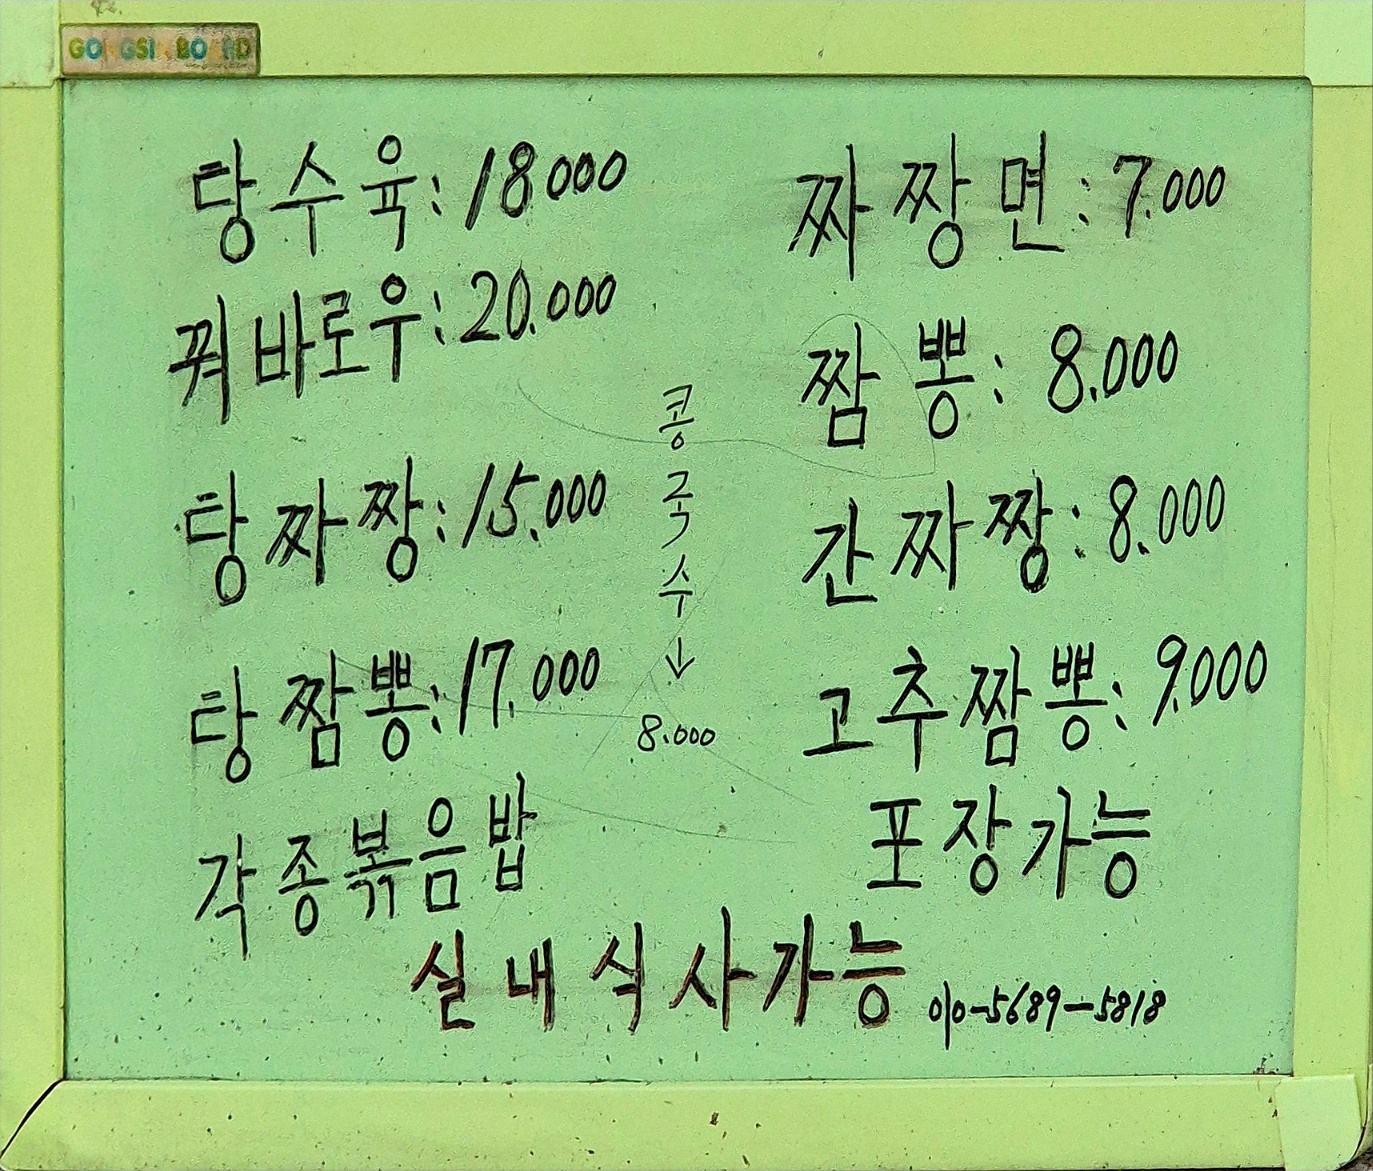 탕수육: 18000
꿔바로우: 20.000
탕짜짱: 15.000
탕짬뽕: 17.000
각종볶음밥
콩국수↓
8.000
짜짱면: 7.000
짬뽕: 8.000
간짜짱: 8.000
고추짬뽕: 9.000
포장가능
실내식사가능
010-5689-5818